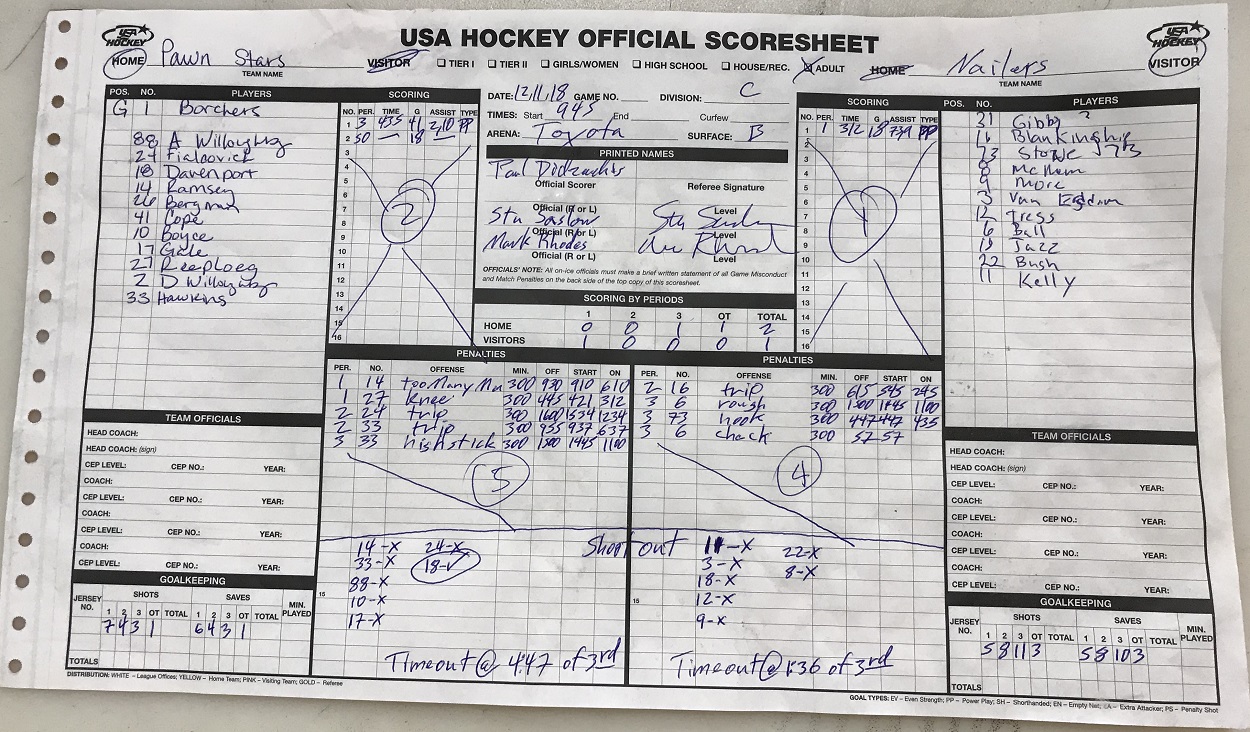 USA HOCKEY
HOME Pawn Stars VISITOR
TEAM NAME
USA HOCKEY OFFICIAL SCORESHEET
TIER I TIER II GIRLS/WOMEN HIGH SCHOOL HOUSE/REC. ADULT
USA HOCKEY
HOME Nailers VISITOR
TEAM NAME
POS. NO. PLAYERS
G 1 Borchers
88 A Willoughby
24 Fialcovich
18 Davenport
14 Ramsey
26 Bergman
41 Cope
10 Boyce
17 Gale
27 Reeploeg
2 D Willoughby
33 Hawkins
SCORING
NO. PER. TIME G ASSIST TYPE
1 3 435 41 2,10 PP
2 SO — 18 —
3
4
5
6
7
8
9
10
11
12
13
14
15
16
2
DATE: 12,11,18 GAME NO. DIVISION: C
TIMES: Start 945 End Curfew
ARENA: Toyota SURFACE: B
PRINTED NAMES
Paul
Official Scorer Referee Signature
Official (R or L) Level
Stu Saslow
Official (R or L) Level
Mark Rhodes
Official (R or L) Level
OFFICIALS' NOTE: All on-ice officials must make a brief written statement of all Game Misconduct
and Match Penalties on the back side of the top copy of this scoresheet.
SCORING BY PERIODS
1 2 3 OT TOTAL
HOME 0 0 1 1 2
VISITORS 1 0 0 0 1
SCORING
NO. PER. TIME G ASSIST TYPE
1 1 312 18 PP
2
3
4
5
6
7
8
9
10
11
12
13
14
15
16
1
POS. NO. PLAYERS
21 Gibby ?
16 Blankinship
73 Stowe 73
8 McMum
9 More
3 Van
12 Tress
6 Ball
18 Jazz
22 Bush
11 Kelly
PENALTIES
PER. NO. OFFENSE MIN. OFF START ON
1 14 too Many Mn 300 930 910 610
1 27 knee 300 445 421 312
2 24 trip 300 1600 1534 1234
2 33 trip 300 935 937 637
3 33 highstick 300 1500 1445 1100
5
PENALTIES
PER. NO. OFFENSE MIN. OFF START ON
2 16 trip 300 615 545 245
3 6 rough 300 1500 1445 1100
3 73 hook 300 447 447 435
3 6 check 300 57 57
4
Shoot out
14-X 24-X
33-X 18-✓
88-X
10-X
17-X
15
11-X 22-X
3-X 8-X
18-X
12-X
9-X
15
Timeout @ 4:47 of 3rd
Timeout @ 1:36 of 3rd
TEAM OFFICIALS
HEAD COACH:
HEAD COACH: (sign)
CEP LEVEL: CEP NO.: YEAR:
COACH:
CEP LEVEL: CEP NO.: YEAR:
COACH:
CEP LEVEL: CEP NO.: YEAR:
COACH:
CEP LEVEL: CEP NO.: YEAR:
GOALKEEPING
JERSEY NO. SHOTS SAVES MIN. PLAYED
1 2 3 OT TOTAL 1 2 3 OT TOTAL
7 4 3 1 6 4 3 1
TOTALS
TEAM OFFICIALS
HEAD COACH:
HEAD COACH: (sign)
CEP LEVEL: CEP NO.: YEAR:
COACH:
CEP LEVEL: CEP NO.: YEAR:
COACH:
CEP LEVEL: CEP NO.: YEAR:
COACH:
CEP LEVEL: CEP NO.: YEAR:
GOALKEEPING
JERSEY NO. SHOTS SAVES MIN. PLAYED
1 2 3 OT TOTAL 1 2 3 OT TOTAL
5 8 11 3 5 8 10 3
TOTALS
DISTRIBUTION: WHITE – League Offices; YELLOW – Home Team; PINK – Visiting Team; GOLD – Referee
GOAL TYPES: EV – Even Strength; PP – Power Play; SH – Shorthanded; EN – Empty Net; EA – Extra Attacker; PS – Penalty Shot